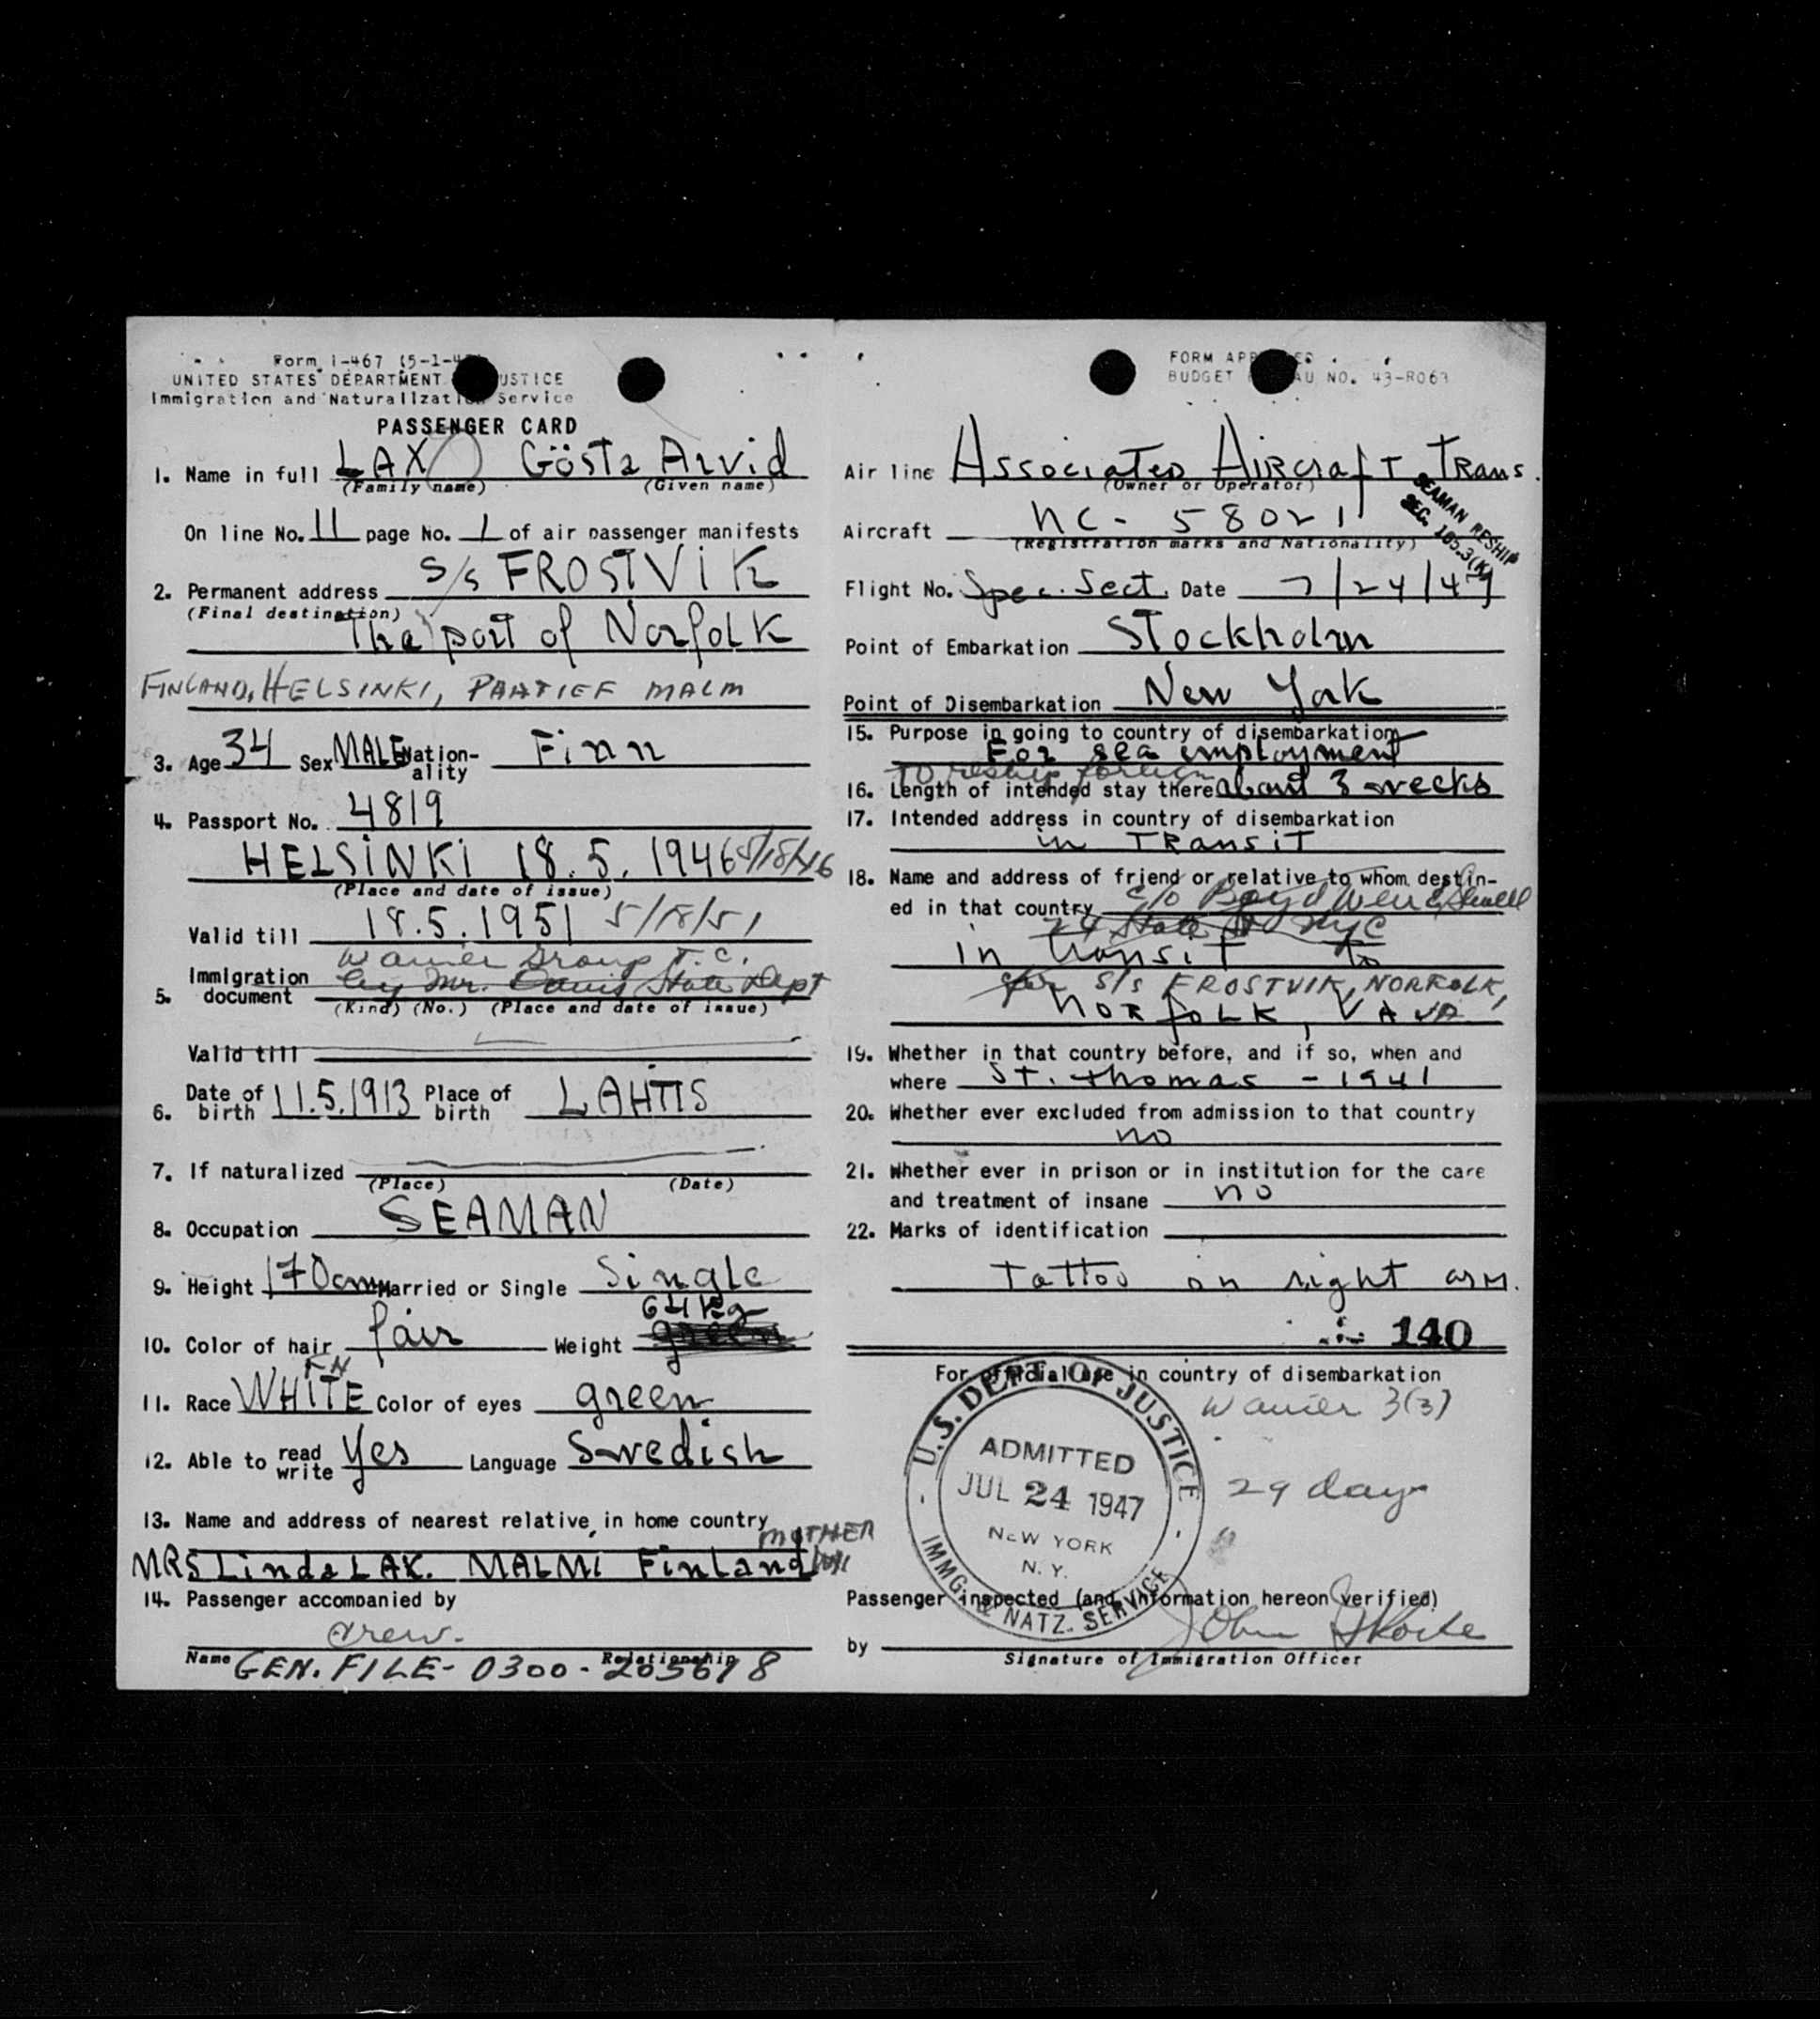 Form I-467 (5-1-4
UNITED STATES DEPARTMENT USTICE
Immigration and Naturalizati Service
PASSENGER CARD
1. Name in full LAX Gösta Arvid
(Family name) (Given name)
On line No. 11 page No. 1 of air passenger manifests
2. Permanent address S/S FROSTVIK
(Final destination)
The port of Norfolk
FINLAND, HELSINKI, MALM
3. Age 34 Sex MALE Nation-ality Finn
4. Passport No. 4819
HELSINKI 18.5.1946 5/18/46
(Place and date of issue)
Valid till 18.5.1951 5/18/51
Waiver Group T.C.
5. Immigration document by Mr. Davis State Dept
(Kind) (No.) (Place and date of issue)
Valid till
6. Date of birth 11.5.1913 Place of birth LAHTIS
7. If naturalized
(Place) (Date)
8. Occupation SEAMAN
9. Height 170cm Married or Single Single
64 kg
10. Color of hair fair Weight green
FN
11. Race WHITE Color of eyes green
12. Able to read write Yes Language Swedish
13. Name and address of nearest relative in home country
MOTHER
MRS Linda LAX. MALMI Finland
14. Passenger accompanied by
crew.
Name Relationship
GEN. FILE- 0300-205678
FORM APP ED
BUDGET AU NO. 43-R063
Air line Associated Aircraft Trans.
(Owner or Operator)
SEAMAN RESHIP
SEC. 165.3(K)
Aircraft NC- 58021
(Registration marks and Nationality)
Flight No. Spec. Sect. Date 7/24/47
Point of Embarkation Stockholm
Point of Disembarkation New York
15. Purpose in going to country of disembarkation
For sea employment
To reship foreign
16. Length of intended stay there about 3 weeks
17. Intended address in country of disembarkation
in TRansiT
18. Name and address of friend or relative to whom destin-
ed in that country c/o Boyd Weir & Sewell
24 State St NYC
in transit to
for S/S FROSTVIK, NORFOLK,
NORfoLK, VA VA
19. Whether in that country before, and if so, when and
where St. Thomas - 1941
20. Whether ever excluded from admission to that country
no
21. Whether ever in prison or in institution for the care
and treatment of insane no
22. Marks of identification
Tattoo on right arm.
140
For official use in country of disembarkation
Waiver 3(3)
29 days
U.S. DEPT. OF JUSTICE
ADMITTED
JUL 24 1947
NEW YORK
N.Y.
IMMG. & NATZ. SERVICE
Passenger inspected (and information hereon verified)
by John
Signature of Immigration Officer